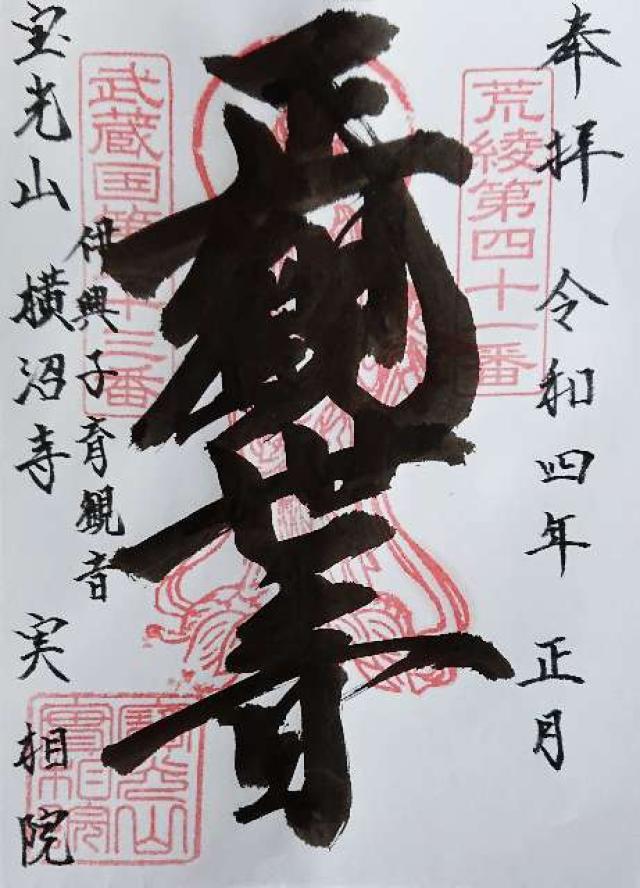 奉拝 令和四年 正月
荒綾第四十一番
正観世音
武蔵国第 十三番
伊興子育観音
宝光山 横沼寺 実相院
寶光山
實相院